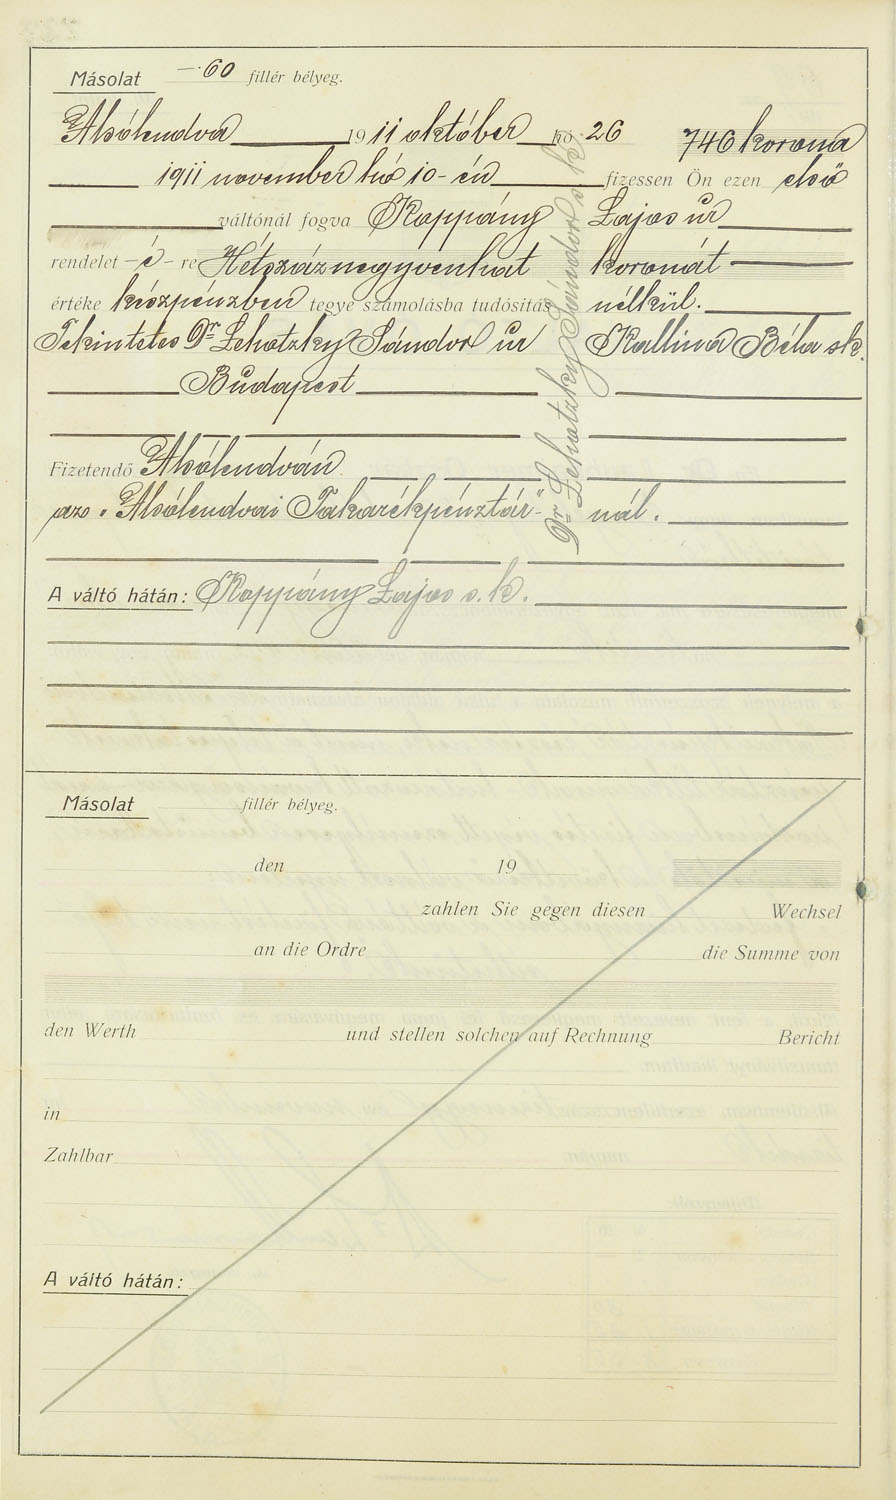 Másolat — ·60 fillér bélyeg.
Alsólendva 1911 október hó 26 746 korona
1911 november hó 10-én fizessen Ön ezen első
váltónál fogva Koppány Lajos úr
rendelet -é- re Hétszáznegyvenhat koronát
értéke készpénzben tegye számolásba tudósitás nélkül.
Tekintetes Dr Lehotzky Sándor úr Kallina Béla sk.
Budapest
Dr Lehotzky Sándor s. k.
Fizetendő Alsólendván
az „Alsólendvai Takarékpénztár"- nál.
A váltó hátán: Koppány Lajos s. k.
Másolat fillér bélyeg.
den 19
zahlen Sie gegen diesen Wechsel
an die Ordre die Summe von
den Werth und stellen solchen auf Rechnung Bericht
in
Zahlbar
A váltó hátán: